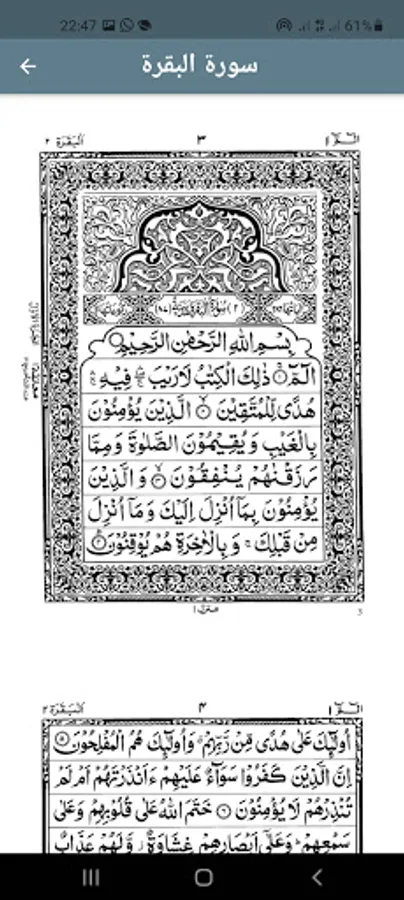 22:47
61%
سورة البقرة
الٓمّٓ ١
٣
اَلْبَقَرَة ٢
بِسْمِ اللهِ الرَّحْمٰنِ الرَّحِيْمِ
الٓمّٓ ۚ ١ ذٰلِكَ الْكِتٰبُ لَا رَيْبَ ۛ فِيْهِ ۛ
هُدًى لِّلْمُتَّقِيْنَ ۙ ٢ الَّذِيْنَ يُؤْمِنُوْنَ
بِالْغَيْبِ وَيُقِيْمُوْنَ الصَّلٰوةَ وَمِمَّا
رَزَقْنٰهُمْ يُنْفِقُوْنَ ۙ ٣ وَالَّذِيْنَ
يُؤْمِنُوْنَ بِمَآ اُنْزِلَ اِلَيْكَ وَمَآ اُنْزِلَ
مِنْ قَبْلِكَ ۚ وَبِالْاٰخِرَةِ هُمْ يُوْقِنُوْنَ ؕ ٤
منزل ١
3
الٓمّٓ ١
٤
اَلْبَقَرَة ٢
اُولٰٓئِكَ عَلٰى هُدًى مِّنْ رَّبِّهِمْ ۙ وَاُولٰٓئِكَ هُمُ الْمُفْلِحُوْنَ ٥
اِنَّ الَّذِيْنَ كَفَرُوْا سَوَآءٌ عَلَيْهِمْ ءَاَنْذَرْتَهُمْ اَمْ لَمْ
تُنْذِرْهُمْ لَا يُؤْمِنُوْنَ ٦ خَتَمَ اللهُ عَلٰى قُلُوْبِهِمْ وَعَلٰى
سَمْعِهِمْ ؕ وَعَلٰٓى اَبْصَارِهِمْ غِشَاوَةٌ ز وَّلَهُمْ عَذَابٌ